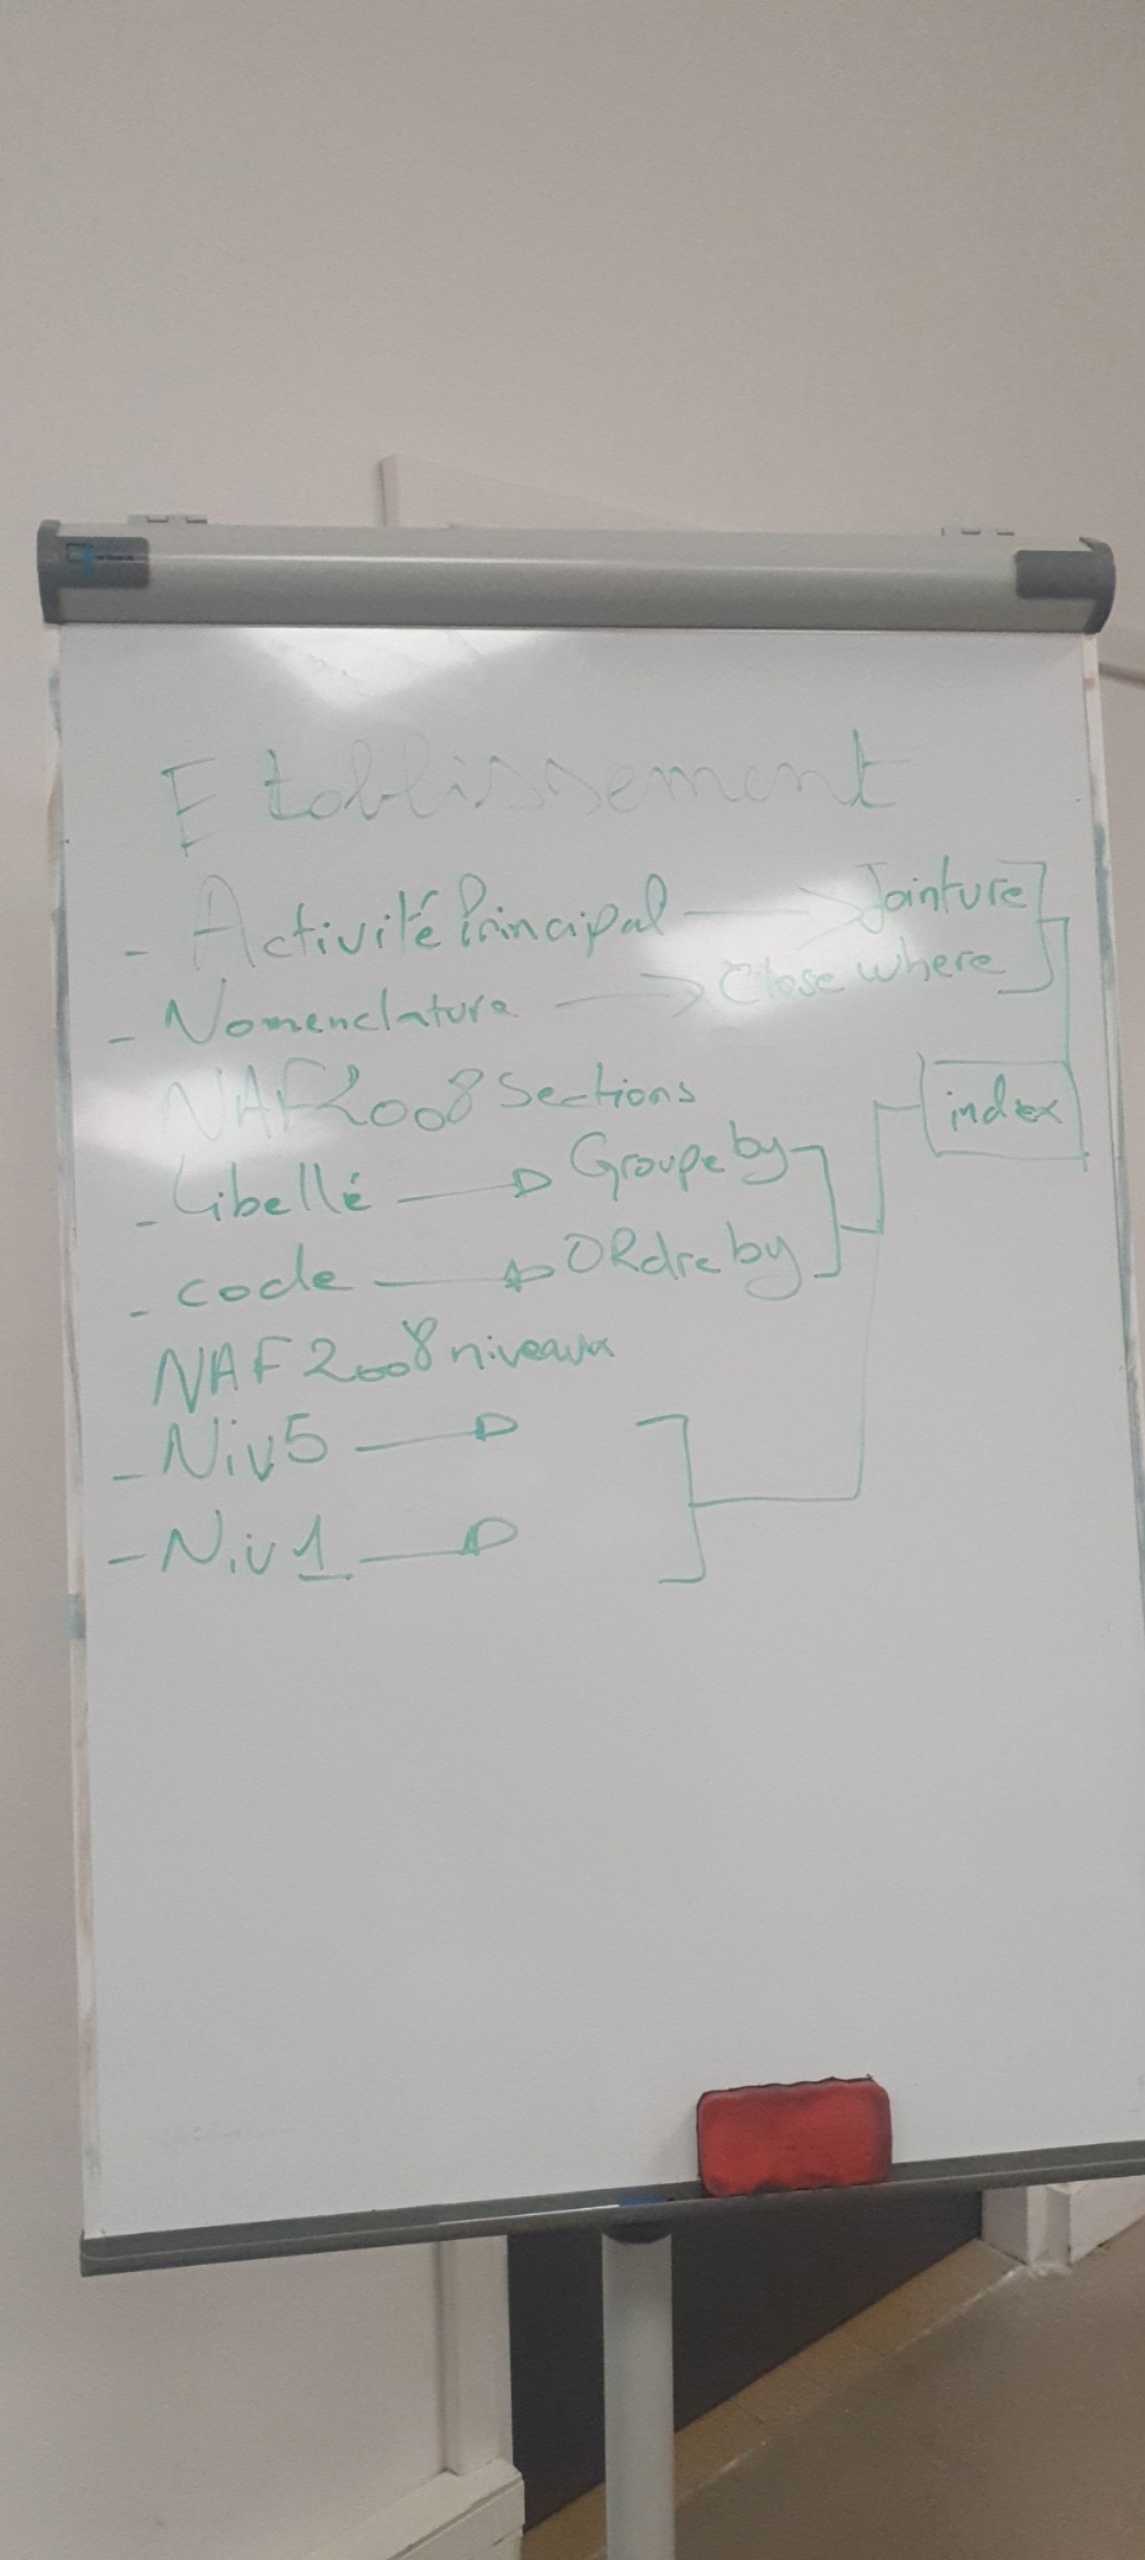 Etablissement
- Activité Principal → Jointure
- Nomenclature → Close where
NAF2008 Sections
index
- Libellé → Groupe by
- code → ORdre by
NAF 2008 niveaux
- Niv5 →
- Niv 1 →